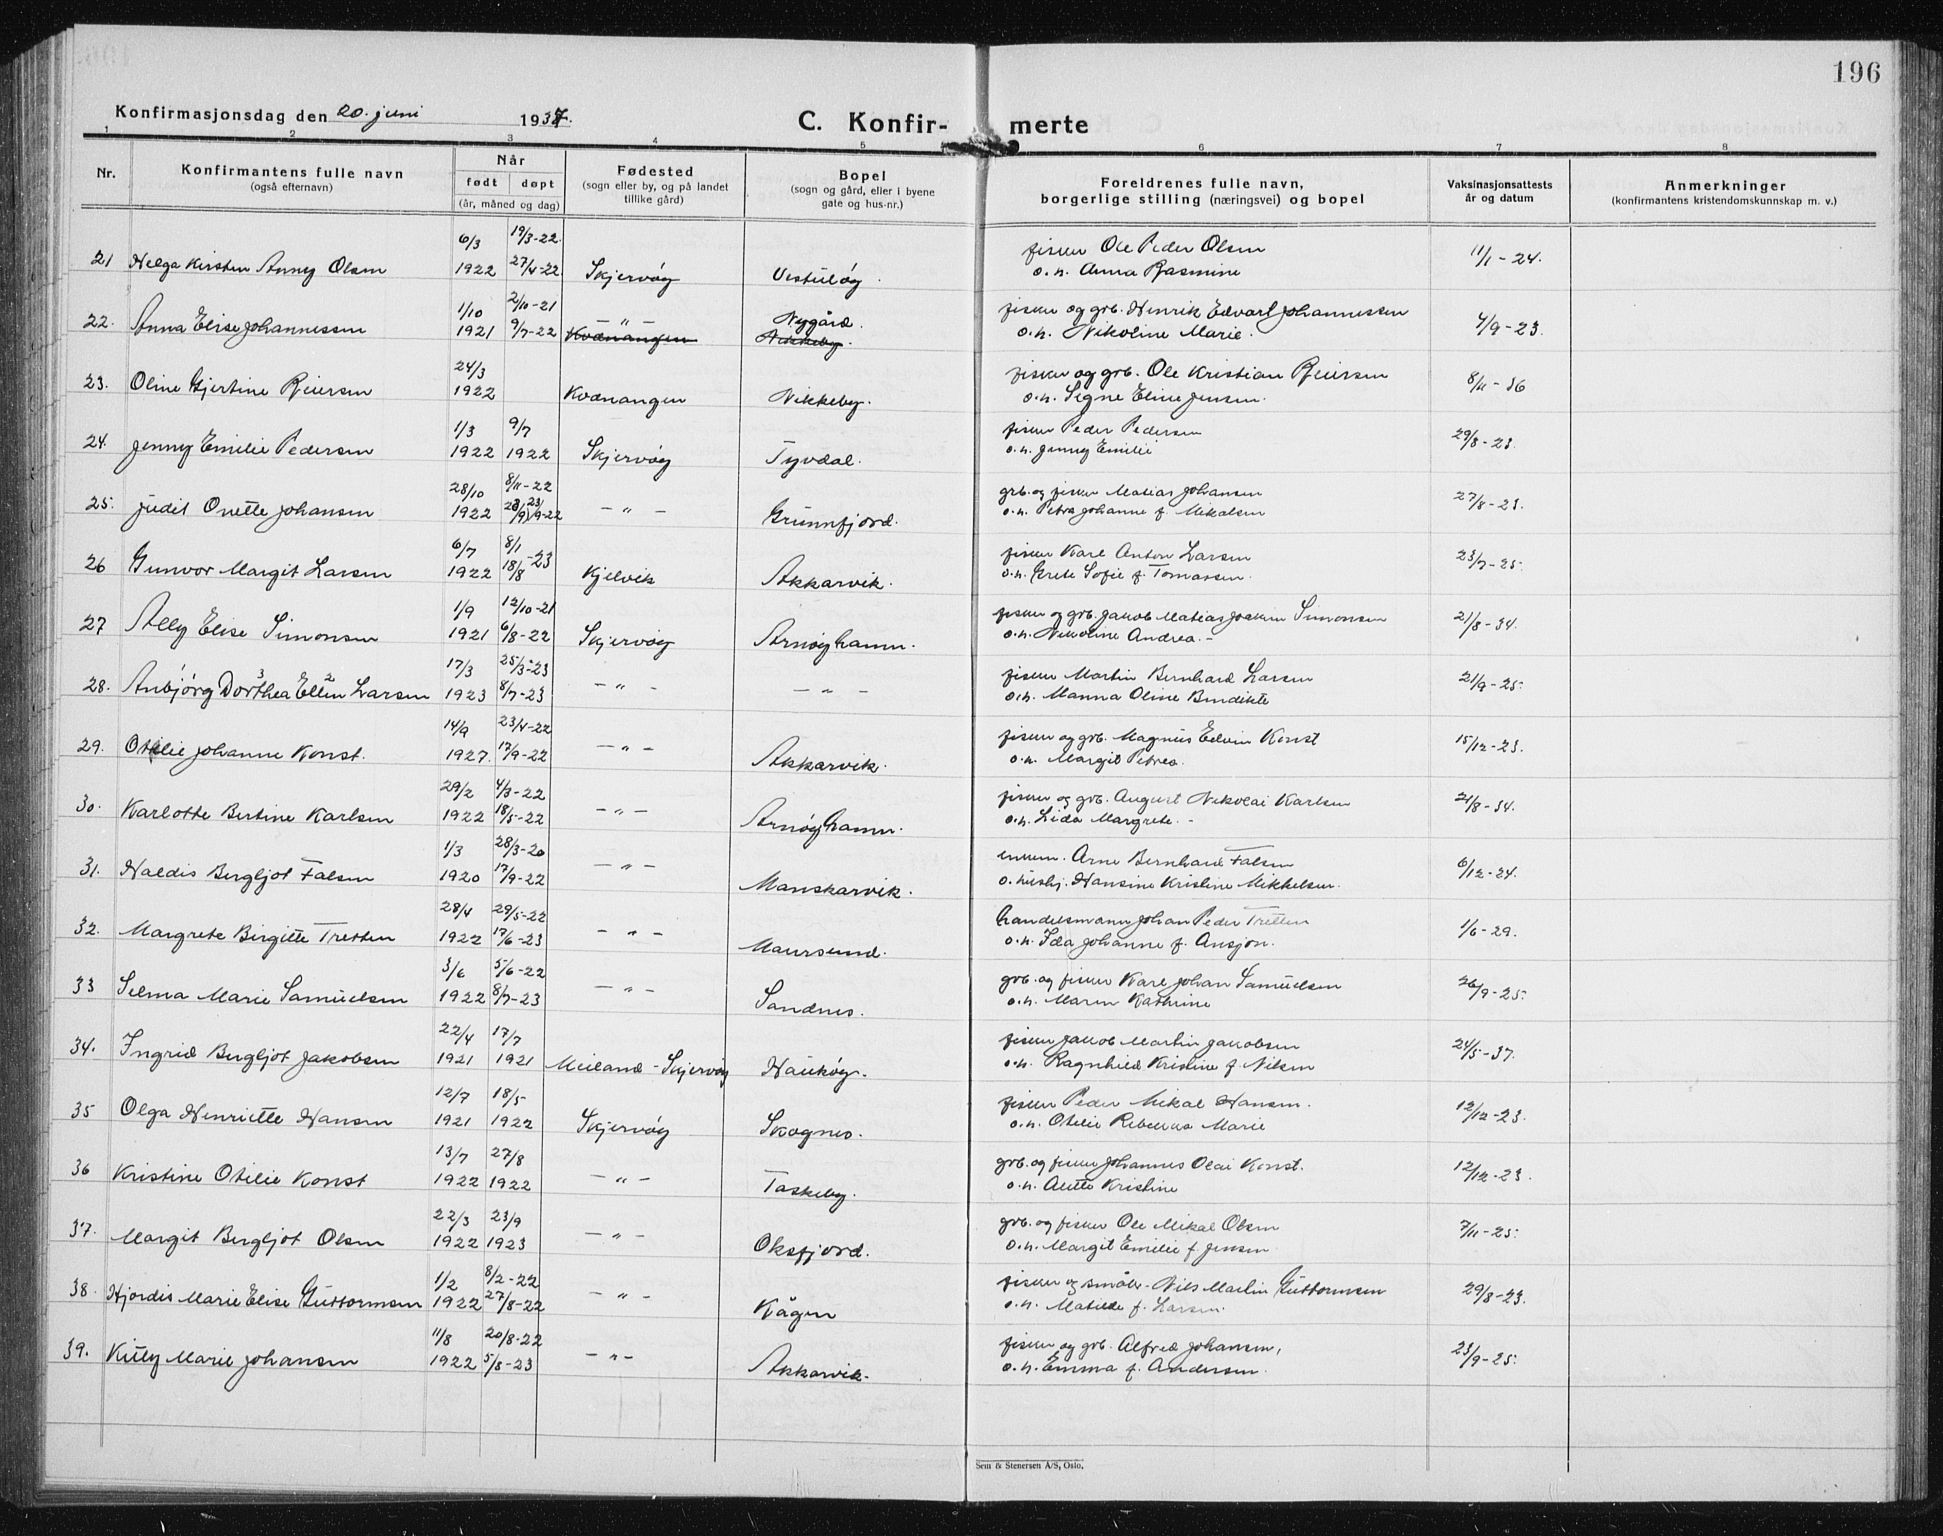 196
Konfirmasjonsdag den 20. juni 1937.
C. Konfir- merte
1 2 3 4 5 6 7 8
Nr. Konfirmantens fulle navn (også efternavn) Når født døpt (år, måned og dag) Fødested (sogn eller by, og på landet tillike gård) Bopel (sogn og gård, eller i byene gate og hus-nr.) Foreldrenes fulle navn, borgerlige stilling (næringsvei) og bopel Vaksinasjonsattests år og datum Anmerkninger (konfirmantens kristendomskunnskap m. v.)
21 Helga Kirsten Anny Olsen 6/3 1922 19/3-22. 27/4-22 Skjervøy fisker Ole Peder Olsen o.h. Anna Rasmine 11/1-24.
22. Anna Elise Johannessen 1/10 1921 2/10-21 9/7-22 -"- Kvænangen Nygård. Nikkeby. fisker og grb. Henrik Edvart Johannessen o.h. Nikoline Marie. 4/9-23.
23. Oline Gjertine Reiersen 24/3 1922 Kvænangen Nikkeby. fisker og grb. Ole Kristian Reiersen o.h. Signe Eline Jensen. 8/11-36
24. Jenny Emilie Pedersen 1/3 1922 9/7 1922 Skjervøy Tyvdal. fisker Peder Pedersen o.h. Jenny Emilie 29/8-23.
25. Judit Onette Johansen 28/10 1922 8/11-22 -"- Grunnfjord. grb. og fisker Matias Johansen o.h. Petra Johanne f. Mikalsen 27/8-23.
26 Gunvor Margit Larsen 6/7 1922 8/1 18/8 -23 Kjelvik Akkarvik. fisker Karl Anton Larsen o.h. Grete Sofie f. Tomassen. 23/7-25.
27 Ally Elise Simonsen 1/9 1921 12/10-21 6/8-22 Skjervøy Arnøyhamn. fisker og grb. Jakob Matias Joakim Simonsen o.h. Nikoline Andrea.- 21/8-34.
28. Anbjørg Dorthea 3 Ellen 2 Larsen 17/3 1923 25/3-23 8/7-23 -"- -"- fisker Martin Bernhard Larsen o.h. Manna Oline Bendikte 21/9-25.
29. Otelie Johanne Konst. 14/9 1927. 23/4-22 17/9-22 -"- Akkarvik. fisker og grb. Magnus Edvin Konst o.h. Margit Petrea. 15/12-23.
30. Karlotte Bertine Karlsen 29/2 1922 4/3-22 18/5-22 -"- Arnøyhamn. fisker og grb. August Nikolai Karlsen o.h. Lida Margrete.- 21/8-34.
31. Haldis Bergljot Falsen 1/3 1920 28/3-20 17/9-22 -"- Manskarvik. enkem. Arne Bernhard Falsen o. hush. Hansine Kristine Mikkelsen. 6/12-24.
32. Margrete Birgitte Tretten 28/4 1922 29/5-22 17/6-23 -"- Maursund. handelsmann Johan Peder Tretten o.h. Ida Johanne f. Ansjøn. 1/6-29.
33 Selma Marie Samuelsen 3/6 1922 5/6-22 8/7-23 -"- Sandnes. grb. og fisker Karl Johan Samuelsen o.h. Maren Kathrine 26/9-25.
34. Ingrid Bergljot Jakobsen 22/4 1921 17/7 1921 Meiland - Skjervøy Haukøy. fisker Jakob Martin Jakobsen o.h. Ragnhild Kristine f. Nilsen 24/5-37.
35 Olga Henriette Hansen 12/7 1921 18/5 1922 Skjervøy Skognes. fisker Peder Mikal Hansen. o.h. Otelie Rebekka Marie 12/12-23.
36 Kristine Otilie Konst 13/7 1922 27/8 1922 -"- Taskeby. grb. og fisker Johannes Olai Konst. o.h. Alette Kristine 12/12-23.
37. Margit Bergljot Olsen 22/3 1922 23/9 1923 -"- Oksfjord. grb. og fisker Ole Mikal Olsen o.h. Margit Emilie f. Jensen 7/11-25.
38. Hjordis Marie Elise Guttormsen 1/2 1922 8/2-22 27/8-22 -"- Kågen fisker og småbr. Nils Martin Guttormsen o.h. Matilde f. Larsen. 29/8-23.
39. Killy Marie Johansen 11/8 1922 20/8-22 5/8-23 -"- Akkarvik. fisker og grb. Alfred Johansen, o.h. Emma f. Andersen. 23/9-25.
Sem & Stenersen A/S, Oslo.